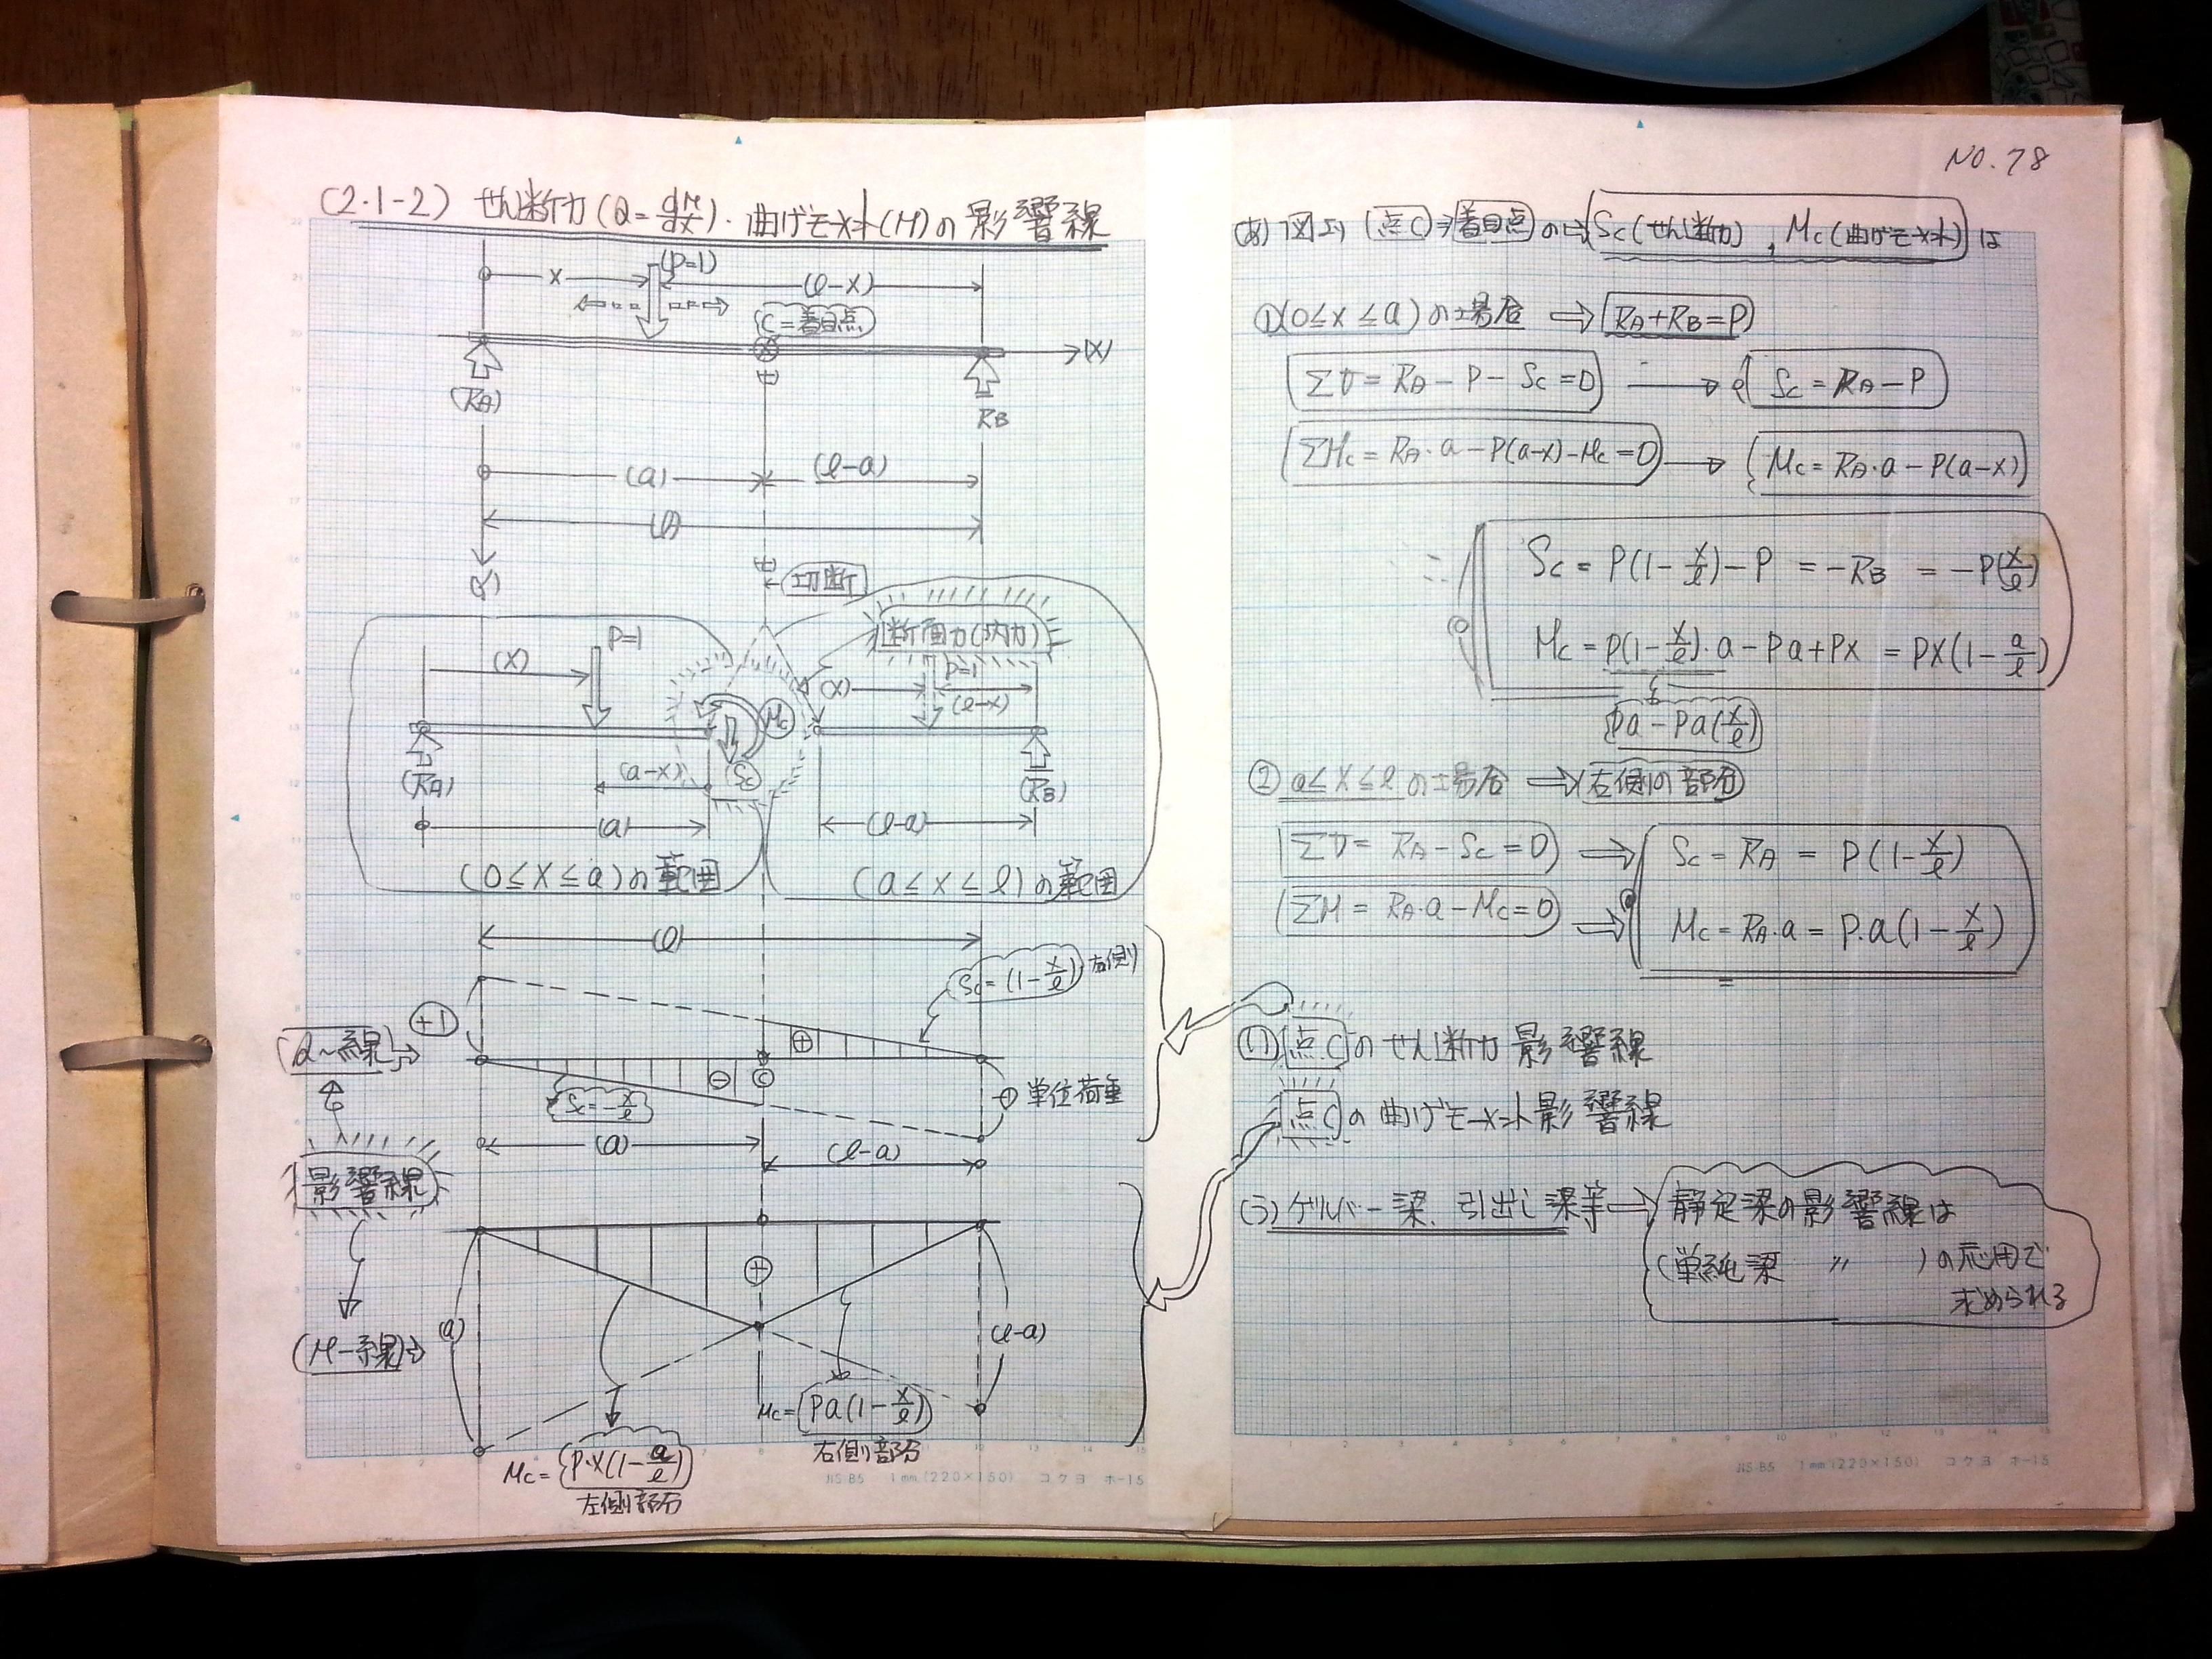 (2・1-2) せん断力(Q=dM/dx)・曲げモーメント(M)の影響線
(P=1)
x
(ℓ-x)
C=着目点
(X)
(RA)
RB
(a)
(ℓ-a)
(ℓ)
(Y)
切断
断面力(内力)
P=1
(X)
Mc
(Sc)
(a-x)
(RA)
(a)
(0≦X≦a)の範囲
P=1
(X)
(ℓ-x)
(RB)
(ℓ-a)
(a≦x≦ℓ)の範囲
(ℓ)
Sc=(1-x/ℓ) 右側
+1
(Q〜線)
⊕
⊖
C
Sc=-x/ℓ
単位荷重
(a)
(ℓ-a)
影響線
⊕
(M-線)
(a)
(ℓ-a)
Mc=Pa(1-x/ℓ)
右側部分
Mc=P・X(1-a/ℓ)
左側部分
JIS B5 1mm(220×150) コクヨ ホ-15
NO.78
(あ) 図より (点C)⇒着目点の⇒Sc(せん断力), Mc(曲げモーメント)は
①(0≦x≦a)の場合 ⇒ RA+RB=P
ΣV=RA-P-Sc=0 → Sc=RA-P
ΣMc=RA・a-P(a-x)-Mc=0 → Mc=RA・a-P(a-x)
Sc=P(1-x/ℓ)-P =-RB =-P(x/ℓ)
Mc=P(1-x/ℓ)・a-Pa+Px =PX(1-a/ℓ)
Pa-Pa(x/ℓ)
② a≦x≦ℓの場合 ⇒ 右側の部分
ΣV=RA-Sc=0 ⇒ Sc=RA=P(1-x/ℓ)
ΣM=RA・a-Mc=0 ⇒ Mc=RA・a=P.a(1-x/ℓ)
(い) 点Cのせん断力影響線
点Cの曲げモーメント影響線
(う) ゲルバー梁、引出し梁等⇒静定梁の影響線は
(単純梁 〃 )の応用で
求められる
JIS B5 1mm(220×150) コクヨ ホ-15